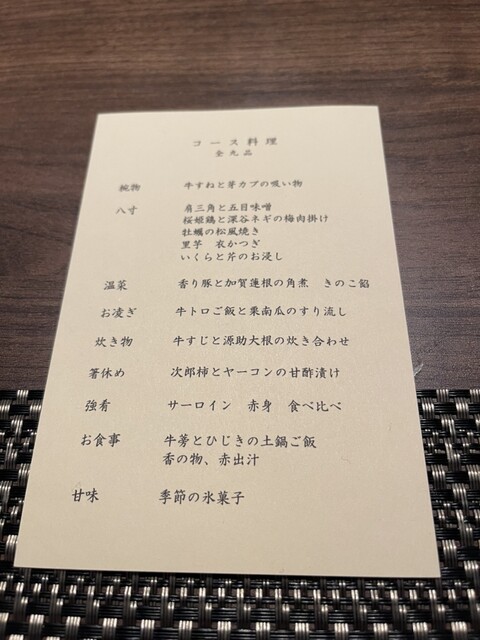 コース料理
全九品
椀物 牛すねと芽カブの吸い物
八寸 肩三角と五目味噌
桜姫鶏と深谷ネギの梅肉掛け
牡蠣の松風焼き
里芋 衣かつぎ
いくらと芹のお浸し
温菜 香り豚と加賀蓮根の角煮 きのこ餡
お凌ぎ 牛トロご飯と栗南瓜のすり流し
炊き物 牛すじと源助大根の炊き合わせ
箸休め 次郎柿とヤーコンの甘酢漬け
強肴 サーロイン 赤身 食べ比べ
お食事 牛蒡とひじきの土鍋ご飯
香の物、赤出汁
甘味 季節の氷菓子